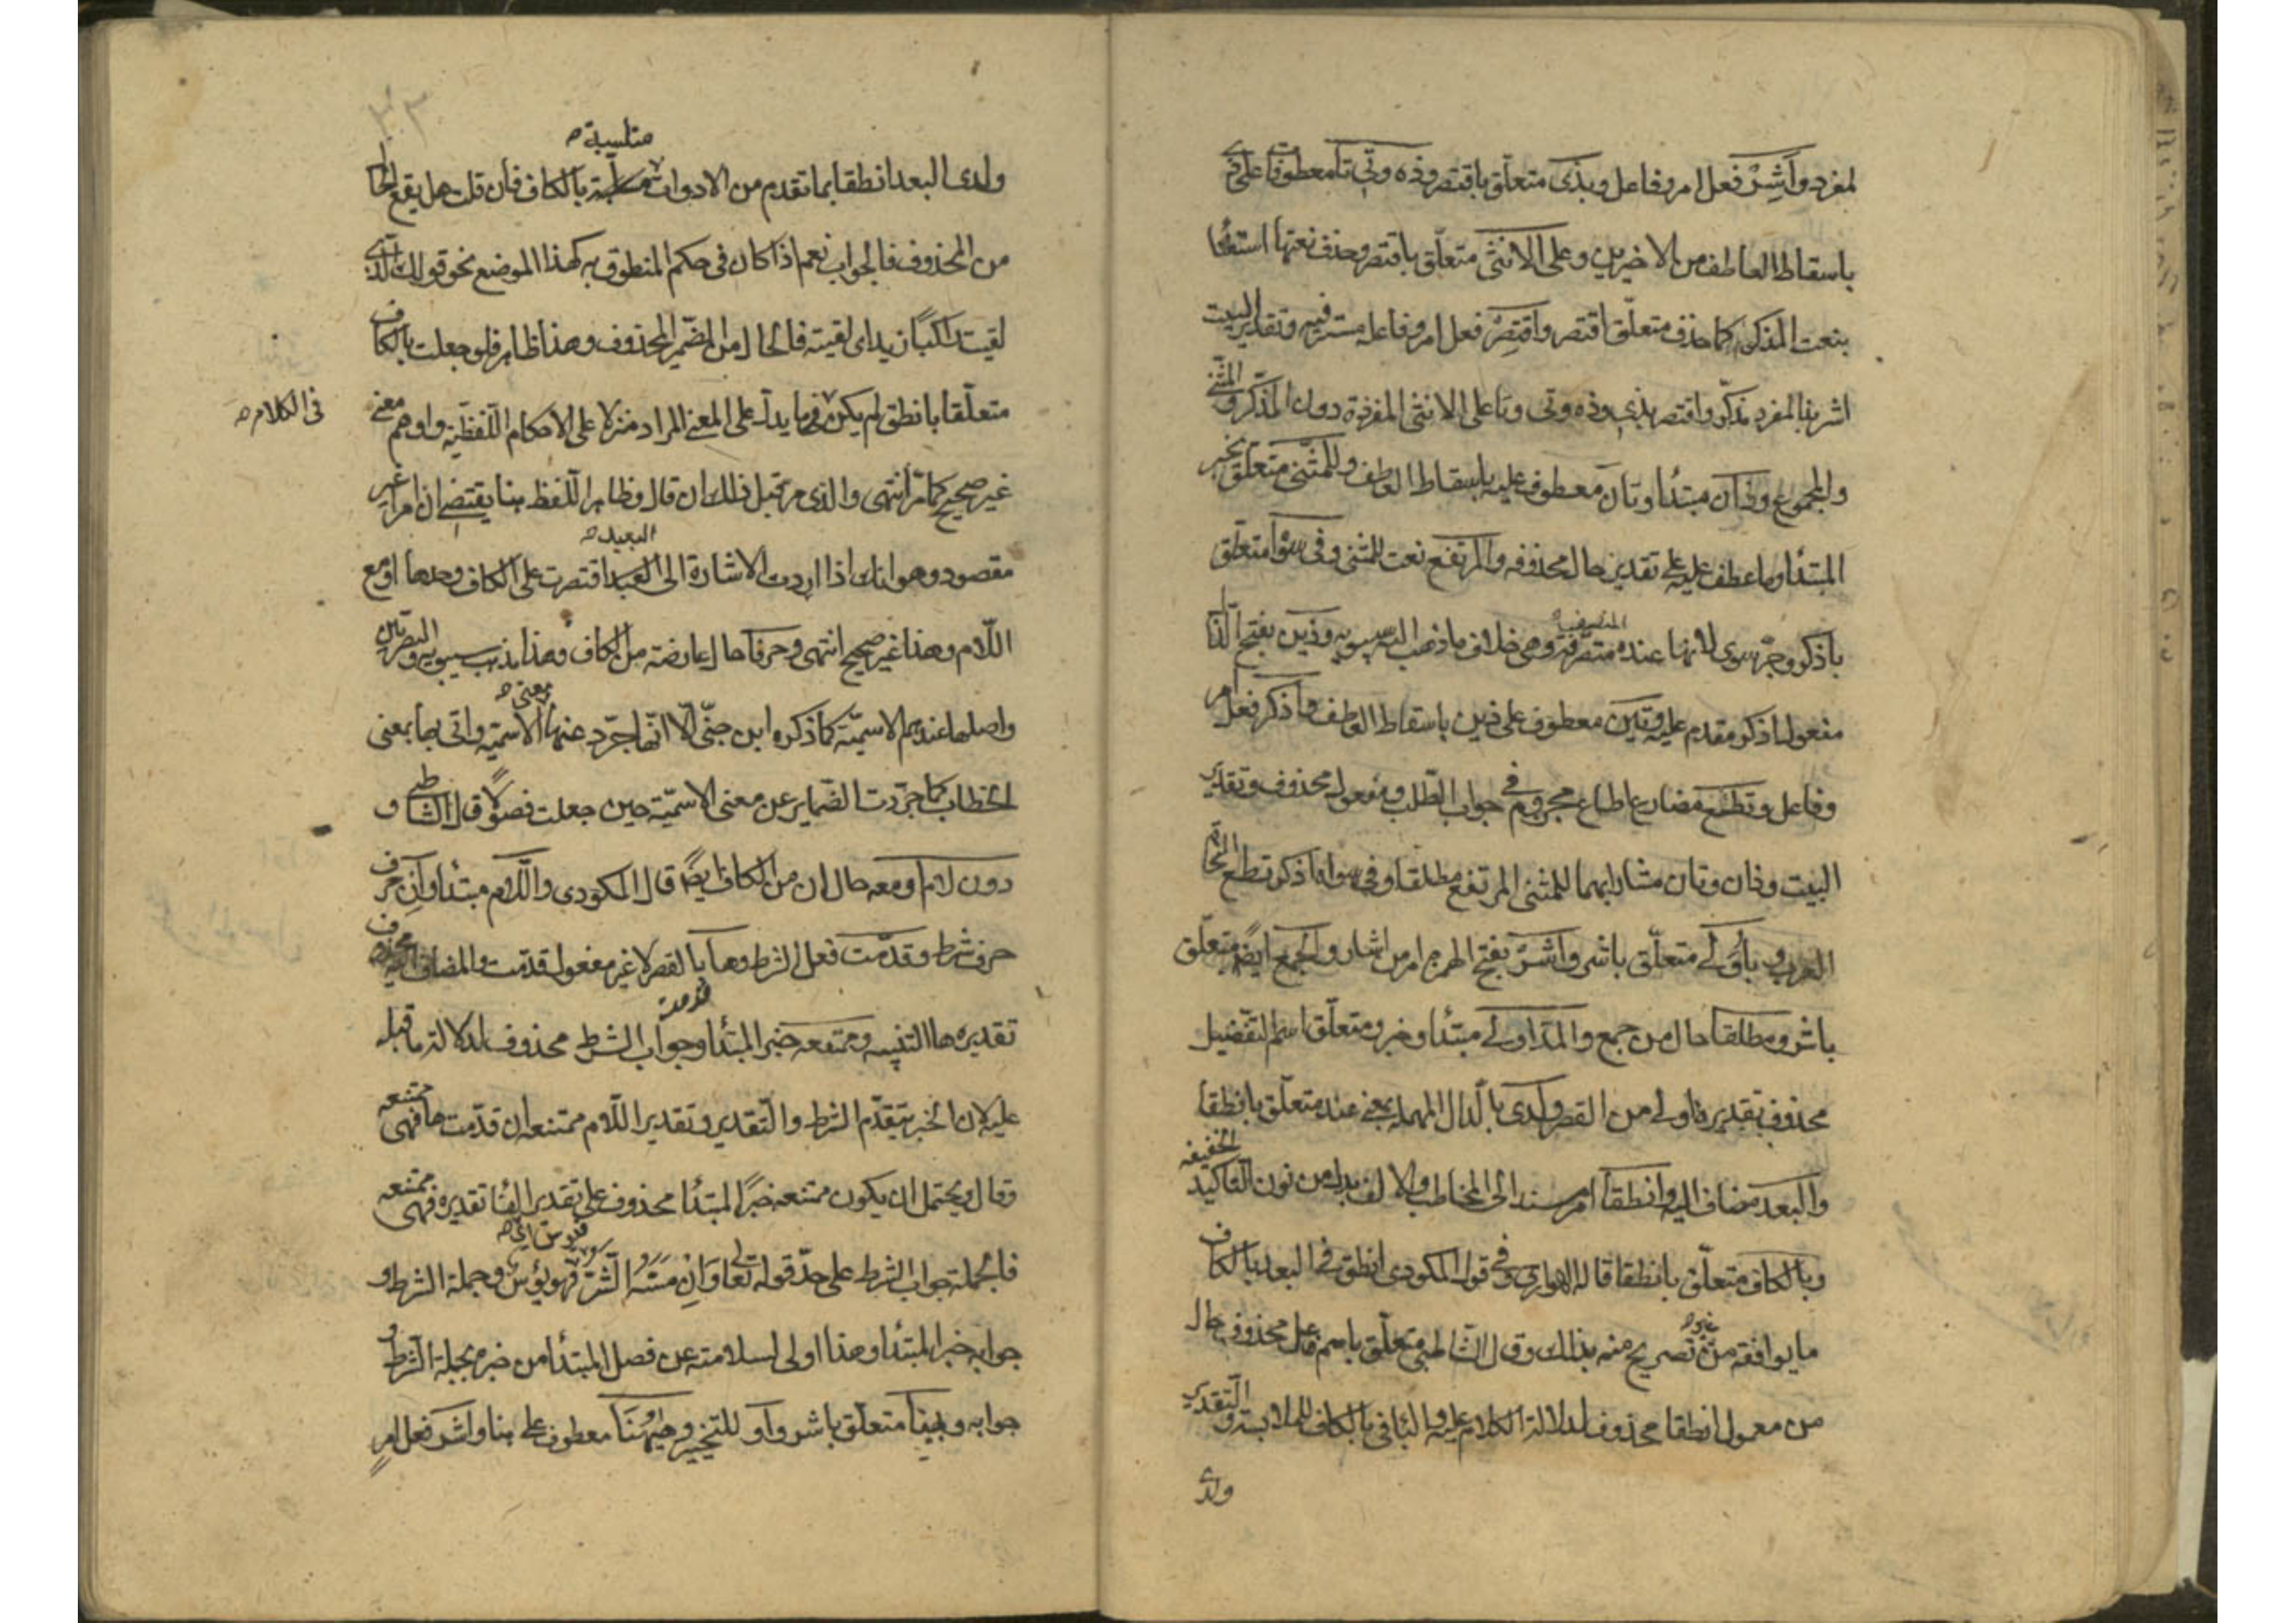 لمفرد وأشِرْ فعل امر وفاعل وبذى متعلّق باقتصر وذه وتى تا معطوفات على ذى
باسقاط العاطف من الاخيرين وعلى الانثى متعلّق باقتصر وحذف نعتها استغنا
بنعت المذكر كما حذف متعلّق اقتصر واقتصِرْ فعل امر وفاعله مستتر فيه وتقدير البيت
اشر بذا لمفرد مذكّر واقتصر بذى وذه وتى وتا على الانثى المفردة دون المذكّر والمثنى
والمجموع وذان مبتدأ وتان معطوف عليه باسقاط العاطف وللمثنى متعلّق بخبر
المبتدأ وما عطف عليه على تقدير حال محذوفه والمرتفع نعت للمثنى وفى سوا متعلّق
باذكر وجرّ سوى لانها عنده متصرّفة وهى خلاف ما ذهب اليه سيبويه وذين بفتح الذال
مفعول اذكر مقدم عليه وتين معطوف على ذين باسقاط العاطف واذكر فعل امر
وفاعل وتطع مضارع اطاع مجزوم فى جواب الطلب ومفعوله محذوف وتقدير
البيت وذان وتان مشار بهما للمثنى المرتفع مطلقا وفى سواه اذكر تطع النحاة
العرب وبأولى متعلّق باشر واشرْ بفتح الهمزة امر من اشار والجمع ايضا متعلّق
باشر ومطلقا حال من جمع والمدّ اولى مبتدأ وخبر ومتعلّق اسم التفضيل
محذوف تقديره اولى من القصر ولدى بالدال المهملة بمعنى عند متعلّق بانطقا
والبعد مضاف اليه وانطقا امر مسند الى المخاطب والالف بدل من نون التأكيد الخفيفه
وبالكاف متعلّق بانطقا قاله الهوارى وفى قول المكودى انطق فى البعد بالكاف
ما يوافقه من غير تصريح منه بذلك وقال الشاطبى متعلّق باسم فاعل محذوف حال
من معمول انطقا محذوف لدلالة الكلام عليه والبا فى بالكاف للملابسة والتقدير
ولدى
ولدى البعد انطقا بما تقدم من الادوات متلبسة بالكاف فان قلت هل يقع الحال
من المحذوف فالجواب نعم اذا كان فى حكم المنطوق به كهذا الموضع نحو قولك الذى
لقيت راكبًا زيد اى لقيته فالحال من المضمر المحذوف وهذا ظاهر فلو جعلت بالكاف
متعلّقا بانطق لم يكن فى الكلام ما يدل على المعنى المراد منزلا على الاحكام اللفظيّة واوهم معنى
غير صحيح كما مرّ انتهى والذى مر قبل ذلك ان قال وظاهر اللفظ هنا يقتضى ان امرا غير
مقصود وهو انك اذا اردت الاشارة الى البعيد اقتصرت على الكاف وحدها او مع
اللّام وهذا غير صحيح انتهى وحرفا حال عارضة من الكاف وهذا مذهب سيبويه والبصريين
واصلها عندهم الاسميّة كما ذكره ابن جنّى الا انها جرّد عنها معنى الاسميّة واتى بها بمعنى
الخطاب كما جرّدت الضماير عن معنى الاسميّة حين جعلت فصولًا قال الشاطبى و
دون لام او معه حالان من الكاف ايضا قال المكودى واللّام مبتدأ وان حرف
حرف شرط وقدّمت فعل الشرط وها بالقصر لا غير مفعول قدّمت والمضاف اليه محذوف
تقديره ها التنبيه وممتنعه خبر المبتدأ وجواب الشرط محذوف لدلالة ما قبله
عليه لان الخبر متقدّم الشرط والتقدير وتقدير اللّام ممتنعه ان قدّمت ها فهى ممتنعه
وقال ويحتمل ان يكون ممتنعه خبرًا لمبتدأ محذوف على تقدير الفا تقديره فهى ممتنعه
فالجملة جواب الشرط على حدّ قوله تعالى وَاِنْ مَسَّهُ الشّرّ فيؤس اى فهو يؤس وجملة الشرط و
جوابه خبر المبتدأ وهذا اولى لسلامته عن فصل المبتدأ من خبره بجملة الشرط و
جوابه وبهنا متعلّق باشر وأو للتخيير وههُنَا معطوف على هنا واشر فعل امر